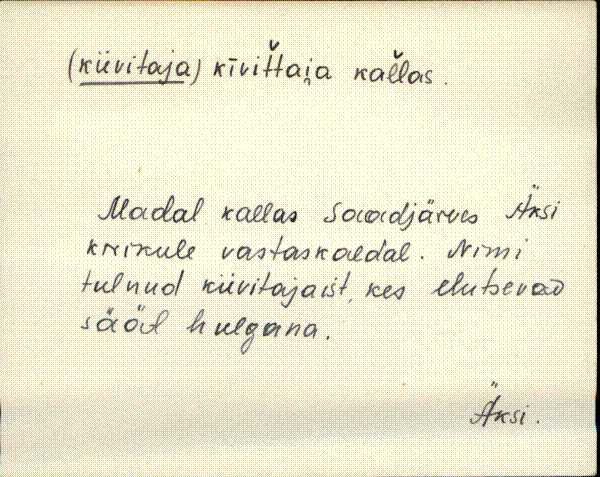 (kiivitaja) kīvittai̮a kallas.
Madal kallas Saadjärves Äksi
kirikule vastaskaldal. Nimi
tulnud kiivitajaist, kes elutsevad
sääl hulgana.
Äksi.